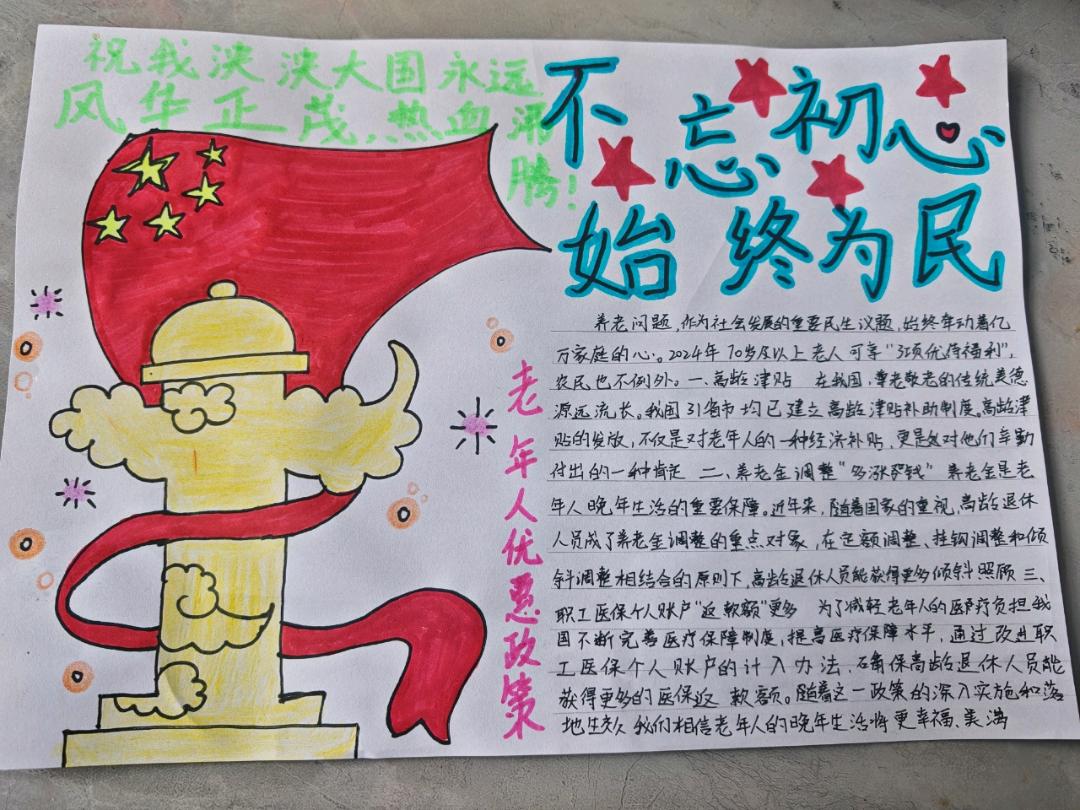 祝我泱泱大国永远
风华正茂,热血沸
腾!
不忘初心
始终为民
老年人优惠政策
养老问题,作为社会发展的重要民生议题,始终牵动着亿
万家庭的心。2024年70岁及以上老人可享“3项优待福利”,
农民也不例外。一、高龄津贴 在我国,尊老敬老的传统美德
源远流长。我国31省市均已建立高龄津贴补助制度。高龄津
贴的发放,不仅是对老年人的一种经济补贴,更是对他们辛勤
付出的一种肯定 二、养老金调整“多涨钱” 养老金是老
年人晚年生活的重要保障。近年来,随着国家的重视,高龄退休
人员成了养老金调整的重点对象,在定额调整、挂钩调整和倾
斜调整相结合的原则下,高龄退休人员能获得更多倾斜照顾 三、
职工医保个人账户“返款额”更多 为了减轻老年人的医疗负担,我
国不断完善医疗保障制度,提高医疗保障水平,通过改进职
工医保个人账户的计入办法,确保高龄退休人员能
获得更多的医保返款额。随着这一政策的深入实施和落
地生效 我们相信老年人的晚年生活将更幸福、美满